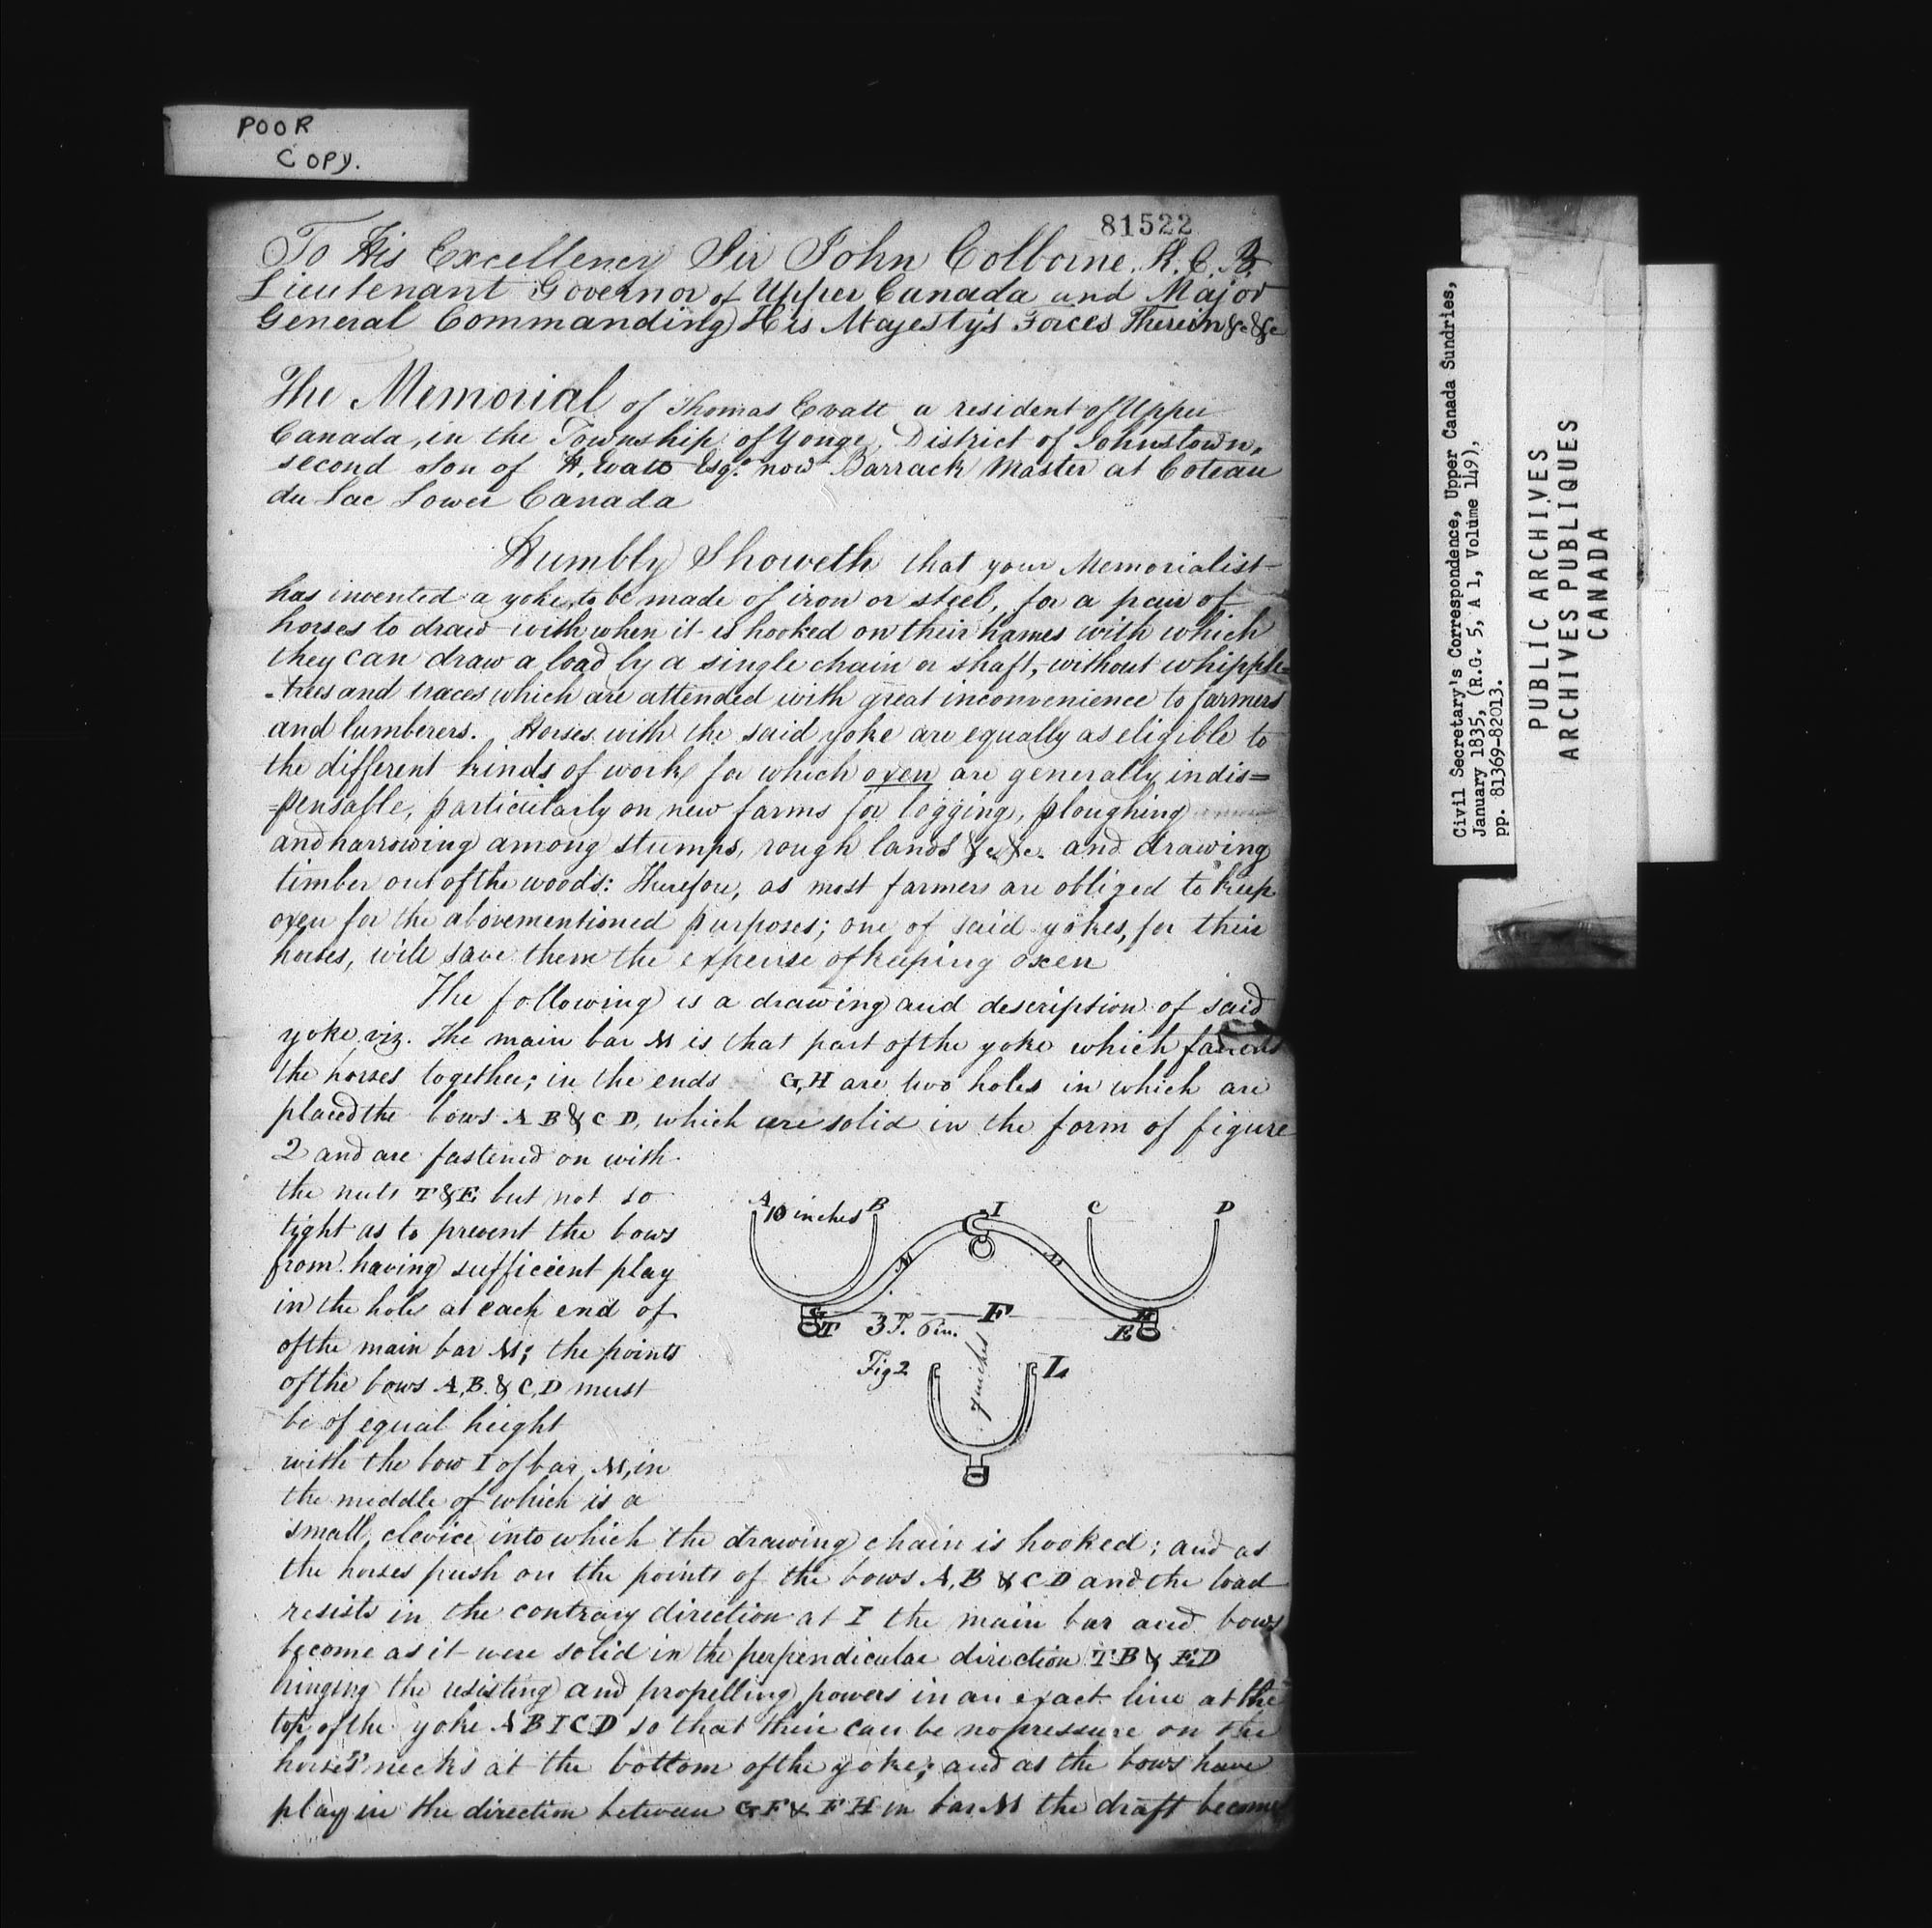 POOR
COPY.
81522
To His Excellency Sir John Colborne. K. C. B.
Lieutenant Governor of Upper Canada and Major
General Commanding His Majesty's Forces Therein &c &c
The Memorial of Thomas Evatt a resident of Upper
Canada, in the Township of Yonge, District of Johnstown,
second Son of H. Evatt Esqr. now Barrack Master at Coteau
du Lac Lower Canada
Humbly Showeth that your Memorialist
has invented a yoke, to be made of iron or steel, for a pair of
horses to draw with when it is hooked on their hames with which
they can draw a load by a single chain or shaft, without whipple=
-trees and traces which are attended with great inconvenience to farmers
and lumberers. Horses with the said yoke are equally as eligible to
the different kinds of work for which oxen are generally indis=
=pensable, particularly on new farms for logging, ploughing
and harrowing among stumps, rough lands &c &c. and drawing
timber out of the woods: Therefore, as most farmers are obliged to keep
oxen for the abovementioned purposes; one of said yokes, for their
horses, will save them the expense of keeping oxen
The following is a drawing and description of said
yoke viz. The main bar M is that part of the yoke which fastens
the horses together; in the ends G, H are two holes in which are
placed the bows A B & C D, which are solid in the form of figure
2 and are fastened on with
the nuts T & E, but not so
tight as to prevent the bows
from having sufficient play
in the holes at each end of
of the main bar M; the points
of the bows A, B. & C, D must
be of equal height
with the bow I of bar M, in
the middle of which is a
small clevice into which the drawing chain is hooked; and as
the horses push on the points of the bows A, B & C D and the load
resists in the contrary direction at I the main bar and bows
become as it were solid in the perpendicular direction T B & E D
bringing the resisting and propelling powers in an exact line at the
top of the yoke A B I C D so that their can be no pressure on the
horses' necks at the bottom of the yoke; and as the bows have
play in the direction between G F & F H in bar M the draft becomes
A 10 inches B I C D
M
G F H
T 3 F. 6 in. E
Fig 2 7 inches L
Civil Secretary's Correspondence, Upper Canada Sundries,
January 1835, (R.G. 5, A 1, Volume 149),
pp. 81369-82013.
PUBLIC ARCHIVES
ARCHIVES PUBLIQUES
CANADA